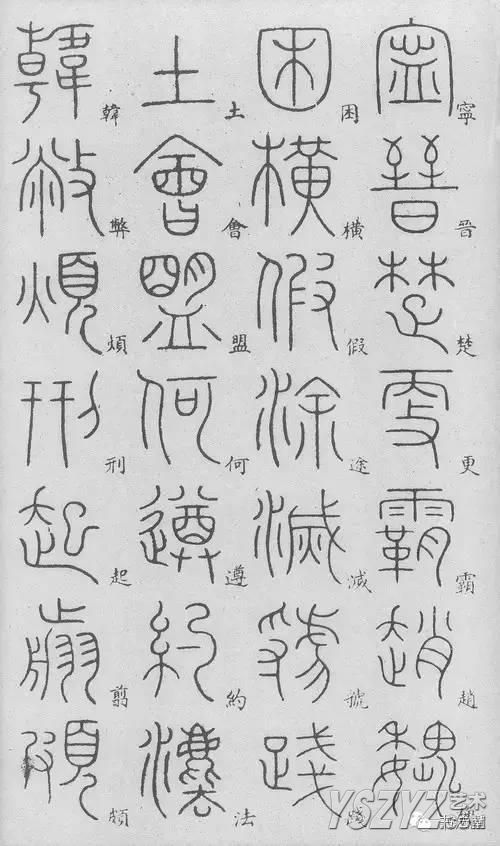 寧晉楚更霸趙魏
困橫假途滅虢踐
土會盟何遵約法
韓弊煩刑起翦頗
YSZYZ艺术